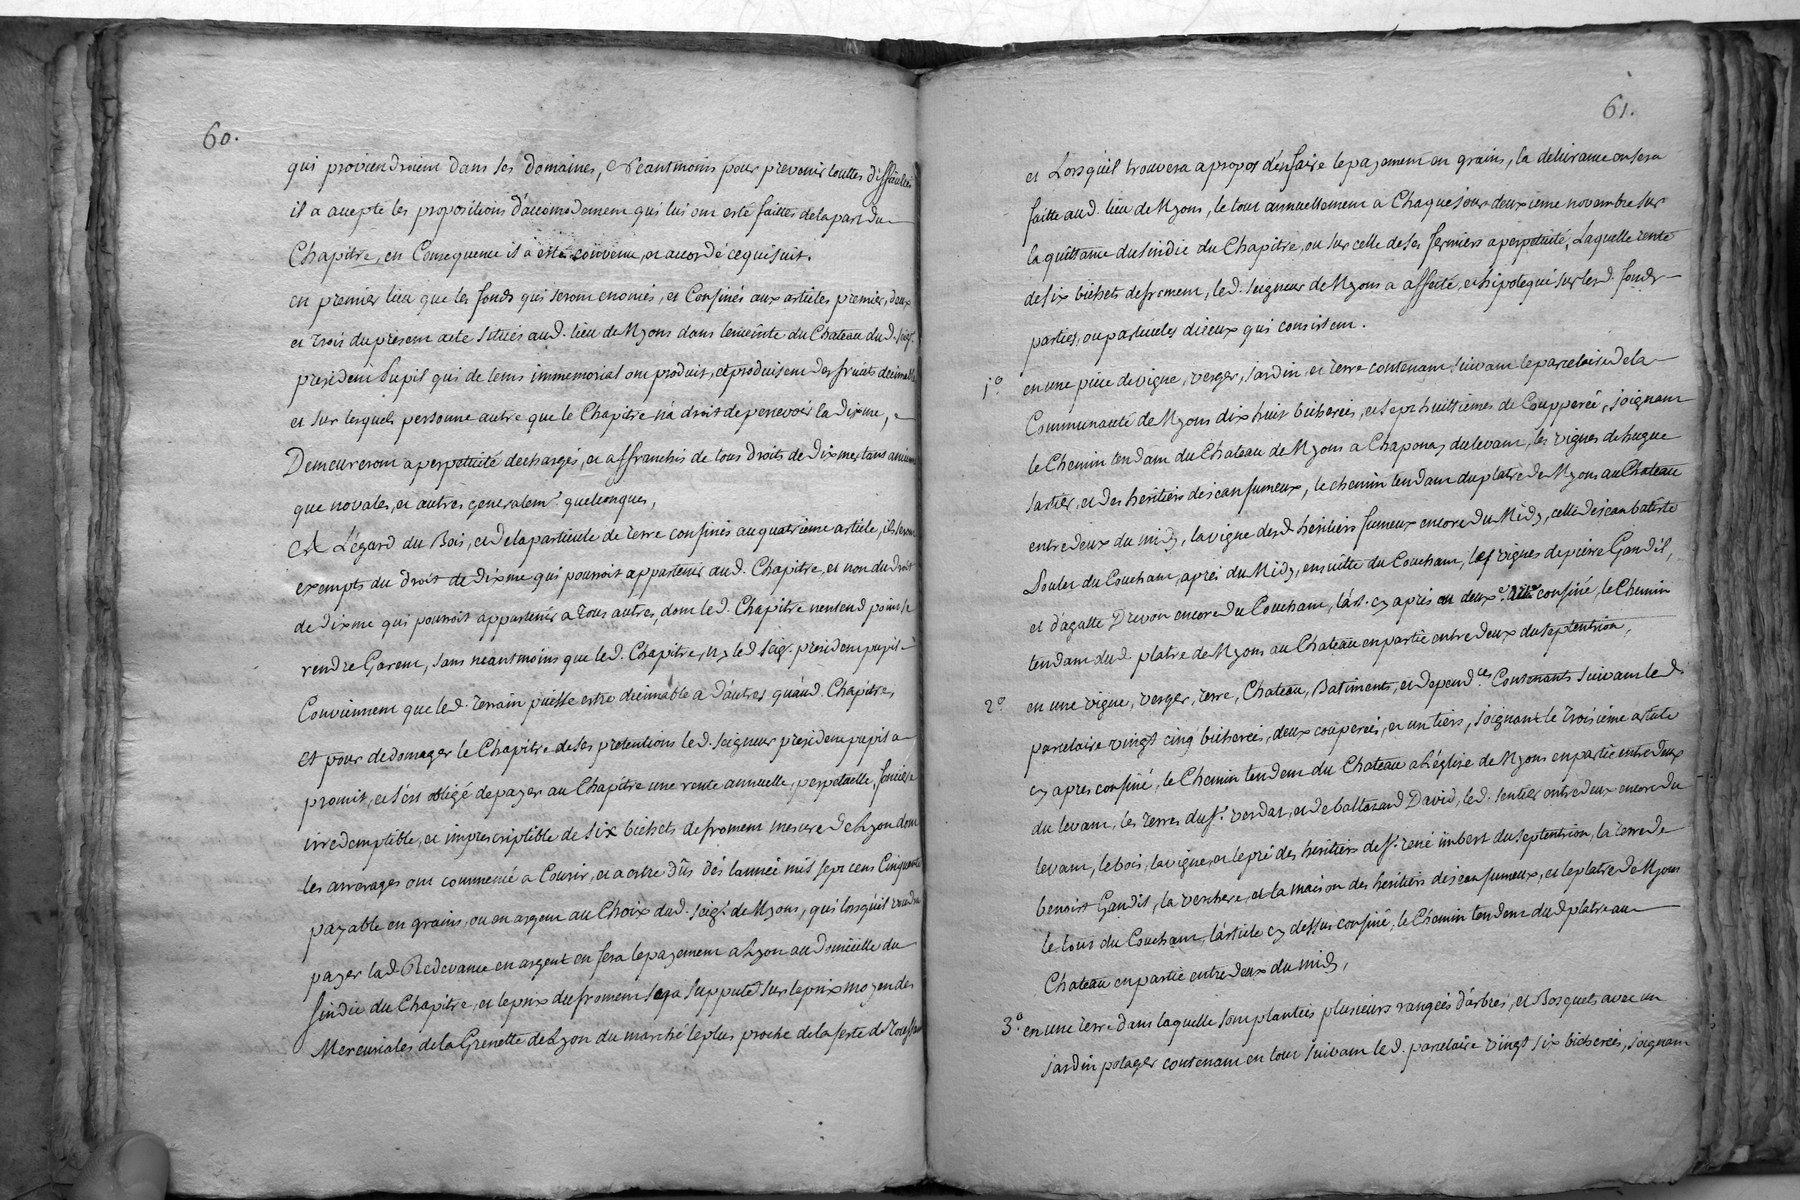 60.
qui proviendroient dans ses domaines, Neantmoins pour prevenir touttes diffäultés
il a accepté les propositions d'accomodement qui lui ont esté faittes de la part du
Chapitre, en Consequence il a esté convenu, et accordé ce qui suit.
en premier lieu que les fonds qui seront enoncés, et Confinés aux articles premier, deux
et trois du present acte situés aud. lieu de Myons dans l'enceinte du Chateau dud. seigr.
president Pupil qui de tems immemorial ont produit, et produisent des fruits decimables
et sur lesquels personne autre que le Chapitre n'a droit de percevoir la dixme,
Demeureront a perpetuité dechargés, et affranchis de tous droits de Dixmes tant anciens
que novales, et autres generalemt. quelconques,
A L'égard du Bois, et de la particule de terre confinés au quatrieme article, ils seront
exempts du droit de dixme qui pourroit appartenir aud. Chapitre, et non du droit
de dixme qui pourroit appartenir a tous autres, dont led. Chapitre n'entend point se
rendre Garent, sans neantmoins que led. Chapitre, ny led. seigr. president pupil
Conviennent que led. terrain puisse estre decimable a d'autres qu'aud. Chapitre,
Et pour dedomager le Chapitre de ses pretentions led. seigneur president pupil a
promit, et s'est obligé de payer au Chapitre une rente annuelle, perpetuelle, fonciere
irredemptible, et imprescriptible de six bichets de froment mesure de Lyon dont
les arrerages ont commencé a Courir, et a estre dûs dés l'année mil sept cens Cinquante
payable en grains, ou en argent au Choix dud. seigr. de Myons, qui lorsqu'il voudra
payer lad. Redevance en argent en fera le payement a Lyon au domicille du
sindic du Chapitre, et le prix du froment sera supputé sur le prix moyen des
Mercuriales de la Grenette de Lyon du marché le plus proche de la feste de Toussaint
61.
et Lors qu'il trouvera a propos d'en faire le payement en grains, la delivrance en sera
faitte aud. lieu de Myons, le tout annuellement a Chaque jour deuxieme novembre sur
la quittance du sindic du Chapitre, ou sur celle de ses fermiers a perpetuité, Laquelle rente
de six bichets de froment, led. seigneur de Myons a affecté, et hipotequé sur lesd. fonds
parties, ou particules d'iceux qui consistent.
1°. en une piece de vigne, verger, jardin, et terre contenant suivant le parcelaire de la
Communauté de Myons dix huit bicherées, et sept huittiemes de Couppereé, joignant
le Chemin tendant du Chateau de Myons a Chaponay du levant, les vignes de hugue
sartier, et des heritiers de jean fumeux, le chemin tendant du platre de Myons au Chateau
entre deux du midy, la vigne desd. heritiers fumeux encore du Midy, celle de jean batiste
Souler du Couchant, aprés du Midy, ensuitte du Couchant, les vignes de pierre Gandil,
et d'agatte Drevon encore du Couchant, l'art. cy aprés deuxe. confiné, le Chemin
tendant dud. platre de Myons au Chateau en partie entre deux du septentrion,
2°. en une vigne, verger, terre, Chateau, Batiments, et dependces. Contenants suivant led.
parcelaire vingt cinq bicherées, deux coupereés, et un tiers, joignant le troisieme article
cy aprés confiné, le Chemin tendent du Chateau a l'église de Myons en partie entre deux
du levant, les terres du sr. verdat, et de baltazard David, led. sentier entre deux encore du
levant, le bois, la vigne, et le pré des heritiers de sr. rené imbert du septentrion, la terre de
benoist Gandil, la verchere, et la maison des heritiers de jean fumeux, et le platre de Myons
le tout du Couchant, l'article cy dessus confiné, le Chemin tendent dud. platre au
Chateau en partie entre deux du midy,
3°. en une terre dans laquelle sont plantées plusieurs rangées d'arbres, et Bosquets avec un
jardin potager contenant en tout suivant led. parcelaire vingt six bicherées, joignant